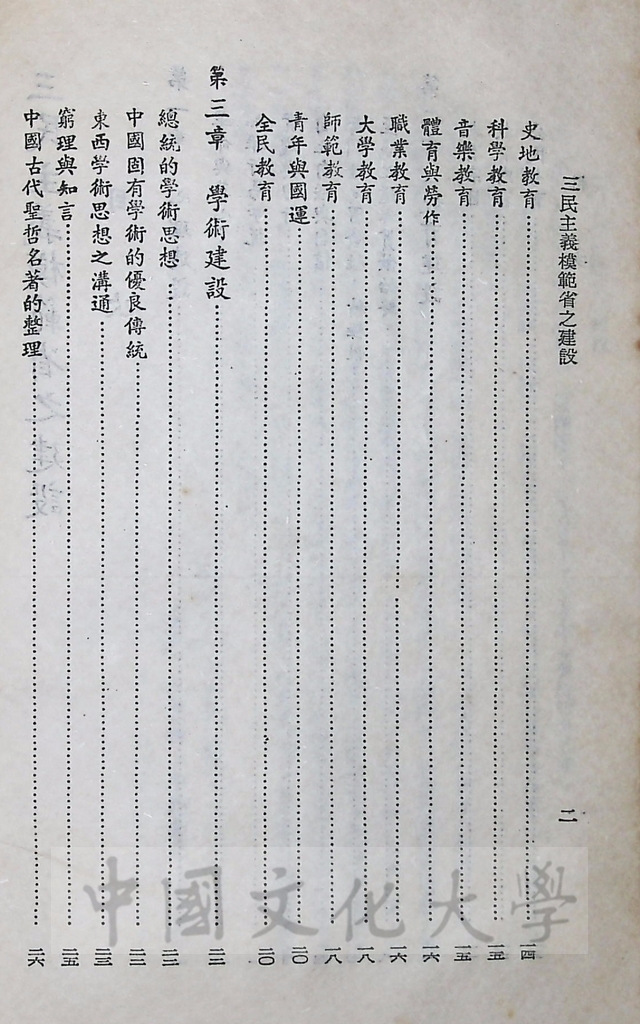 三民主義模範省之建設
二
史地教育……一四
科學教育……一五
音樂教育……一五
體育與勞作……一六
職業教育……一六
大學教育……一八
師範教育……一八
青年與國運……二〇
全民教育……二〇
第三章 學術建設……
總統的學術思想……
中國固有學術的優良傳統……
東西學術思想之溝通……二三
窮理與知言……二五
中國古代聖哲名著的整理……二六
中國文化大學